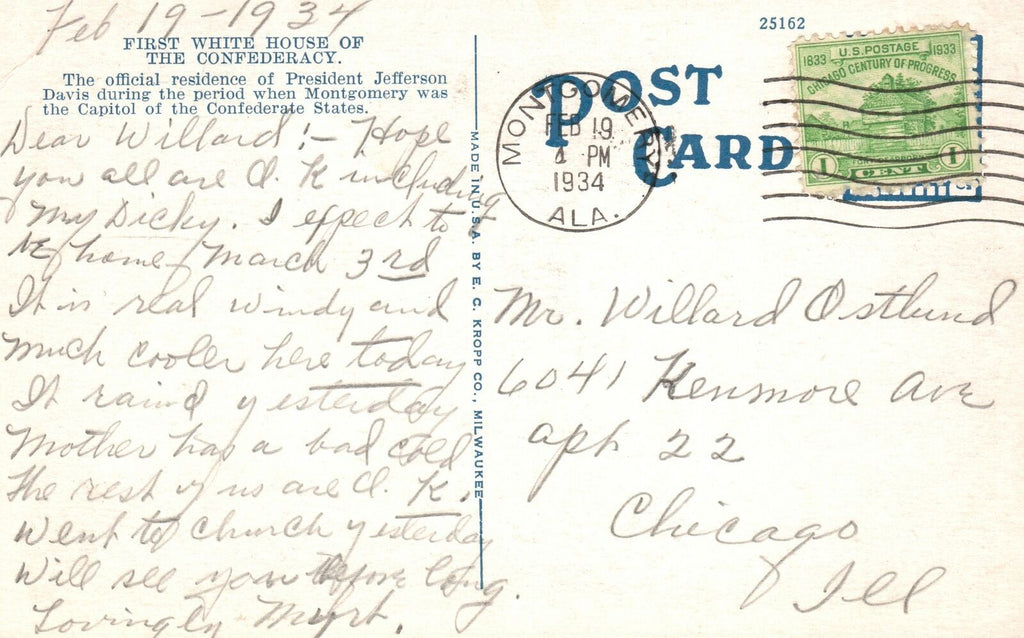 Feb 19-1934
FIRST WHITE HOUSE OF
THE CONFEDERACY.
The official residence of President Jefferson
Davis during the period when Montgomery was
the Capitol of the Confederate States.
Dear Willard:- Hope
you all are O.K including
my Dicky. I expect to
be home March 3rd
It is real windy and
much cooler here today
It raind yesterday
Mother has a bad cold
The rest of us are O.K.
Went to church yesterday
Will see you before long.
Lovingly Myrt.
MADE IN U.S.A. BY E. C. KROPP CO., MILWAUKEE
25162
POST
CARD
MONTGOMERY
FEB 19
PM
1934
ALA.
U.S. POSTAGE
1833 1933
CHICAGO CENTURY OF PROGRESS
1 CENT 1
Mr. Willard Ostlund
6041 Kenmore Ave
apt 22
Chicago
Ill